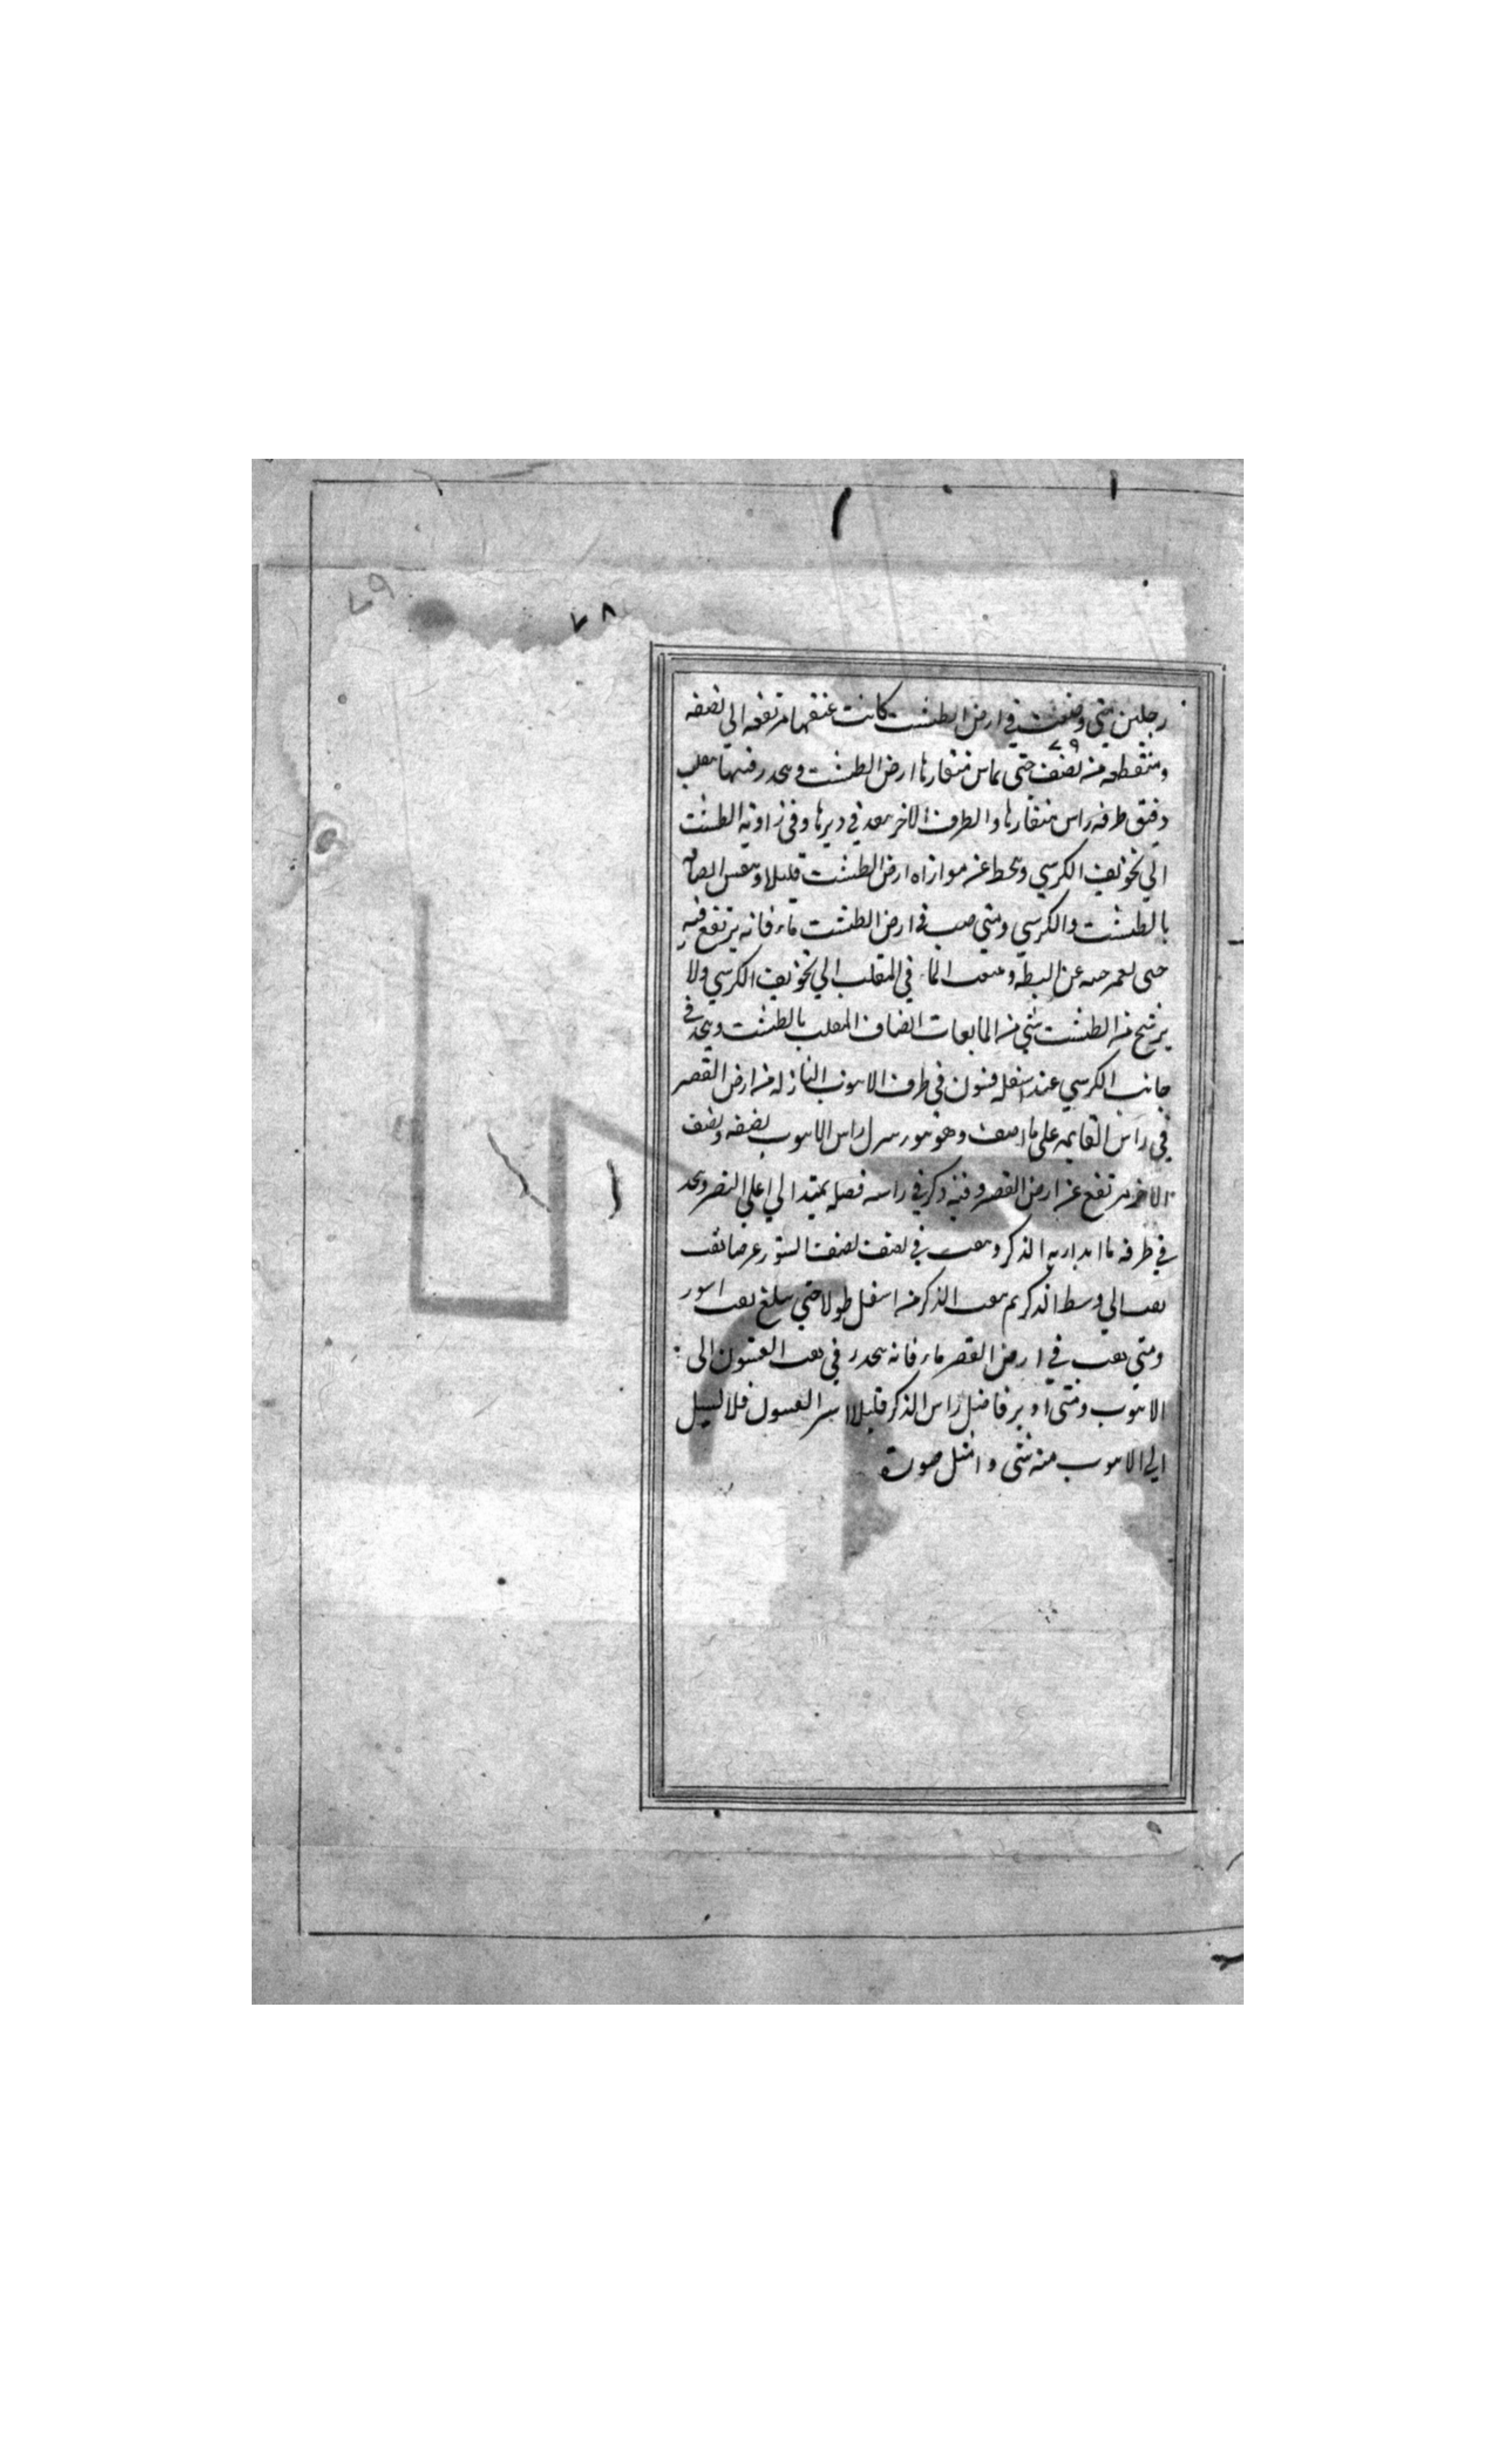 ٧٩
٧٨
رجلين متي وضعت في ارض الطشت كانت عنقها مرتفعه الي نصفه
٧٩
ومنقطعه من نصف حتي يماس منقارها ارض الطشت ويتخذ فيها مقلب
دقيق طرفه راس منقارها والطرف الاخر ينفذ في ديرها وفي زاوية الطشت
الي تجويف الكرسي وينحط عن موازاه ارض الطشت قليلا
بالطشت والكرسي ومتي صب في ارض الطشت ماء فانه يرتفع فيه
حتى عن البطه الماء في المقلب الي تجويف الكرسي ولا
يرشح من الطشت شي من المايعات المقلب بالطشت ويتخذ في
جانب الكرسي عند اسفله فنون في طرف الانبوب النازله من ارض القصر
في راس القايمه على ما اصف وهو راس الانبوب نصفه ونصف
الاخر مرتفع عن ارض القصر وفيه ذكر في راسه فصله يمتد الي اعلي القصر ويتخذ
في طرفه ما اداربه الذكر في نصف عرضا ثقب
الي وسط الذكر ثم ثقب الذكر من اسفل طولا حتي يبلغ ثقب
ومتي في ارض القصر ماء فانه ينحدر في ثقب الى
الانبوب ومتى ادير فاضل راس الذكر قليلا فلا يسيل
الي الانبوب منه شي وامثل صورة